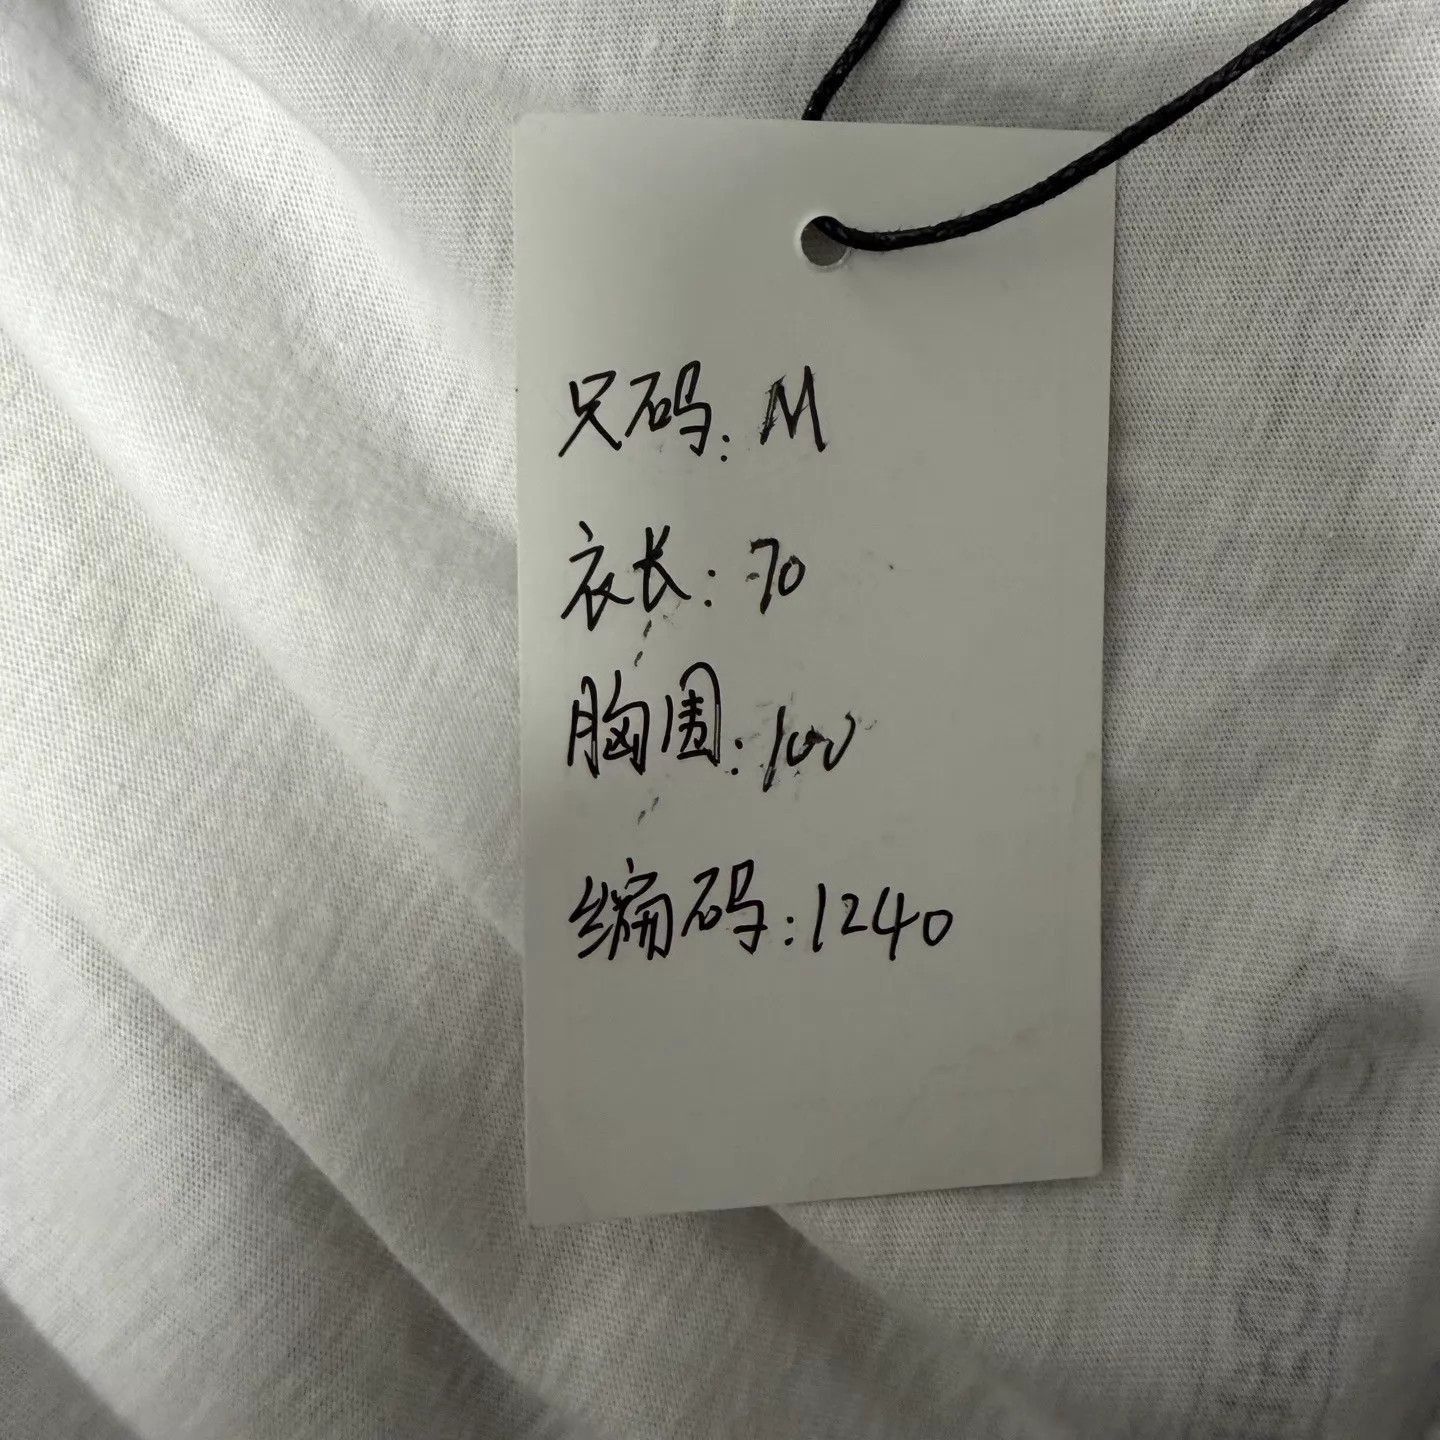 尺码：M
衣长：70
胸围：100
编码：1240